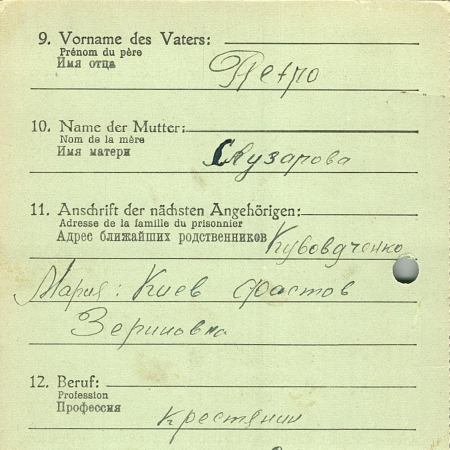 9. Vorname des Vaters:
Prénom du père
Имя отца
Петро
10. Name der Mutter:
Nom de la mère
Имя матери
Кузарова
11. Anschrift der nächsten Angehörigen:
Adresse de la famille du prisonnier
Адрес ближайших родственников
Мария: Киев Фастов
12. Beruf:
Profession
Профессия
крестянин